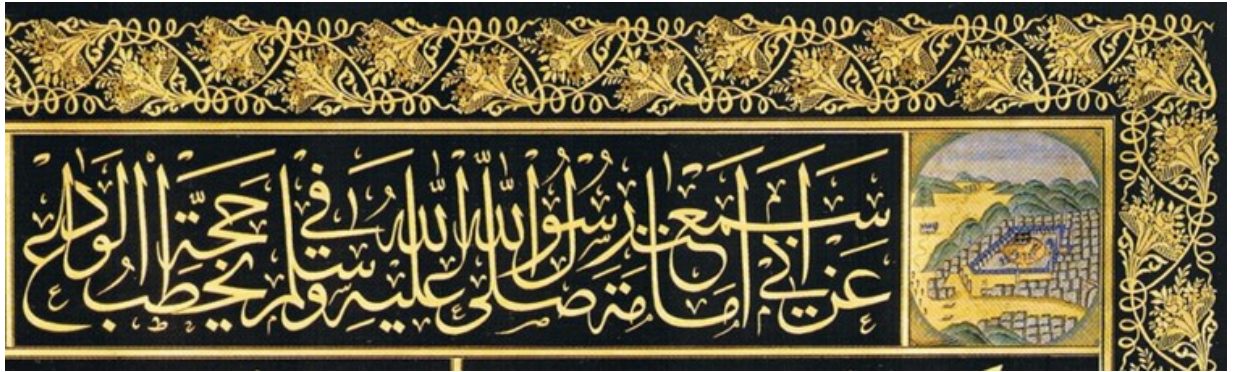 عن أبي أمامة سمعت رسول الله صلى الله عليه وسلم يخطب في حجة الوداع